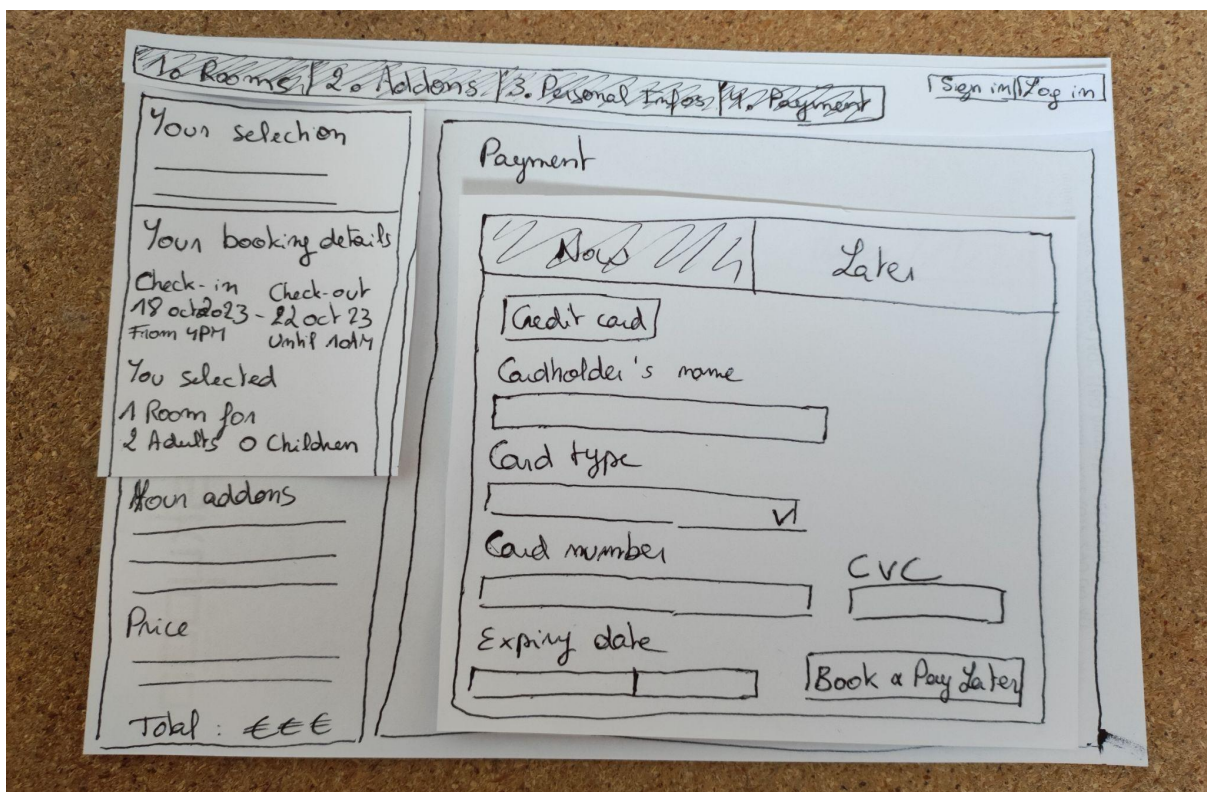 1. Rooms 2. Addons 3. Personal Infos 4. Payment
Sign in Log in
Your selection
Your booking details
Check-in Check-out
18 oct 2023 - 22 oct 23
From 4PM Until 10AM
You selected
1 Room for
2 Adults 0 Children
Your addons
Price
Total : €€€
Payment
Now Later
Credit card
Cardholder's name
Card type
Card number
CVC
Expiry date
Book & Pay Later